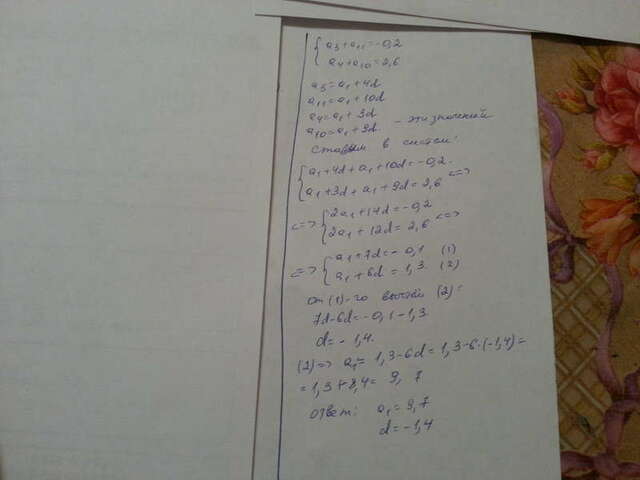 { a₅ + a₁₁ = -0,2
a₄ + a₁₀ = 2,6
a₅ = a₁ + 4d
a₁₁ = a₁ + 10d
a₄ = a₁ + 3d
a₁₀ = a₁ + 9d - эти значений
ставим в систем:
{ a₁ + 4d + a₁ + 10d = -0,2.
a₁ + 3d + a₁ + 9d = 2,6 <=>
<=> { 2a₁ + 14d = -0,2
2a₁ + 12d = 2,6 <=>
<=> { a₁ + 7d = -0,1 (1)
a₁ + 6d = 1,3. (2)
от (1)-го вычтем (2) =
7d - 6d = -0,1 - 1,3
d = -1,4.
(2) => a₁ = 1,3 - 6d = 1,3 - 6·(-1,4) =
= 1,3 + 8,4 = 9,7
ответ: a₁ = 9,7
d = -1,4